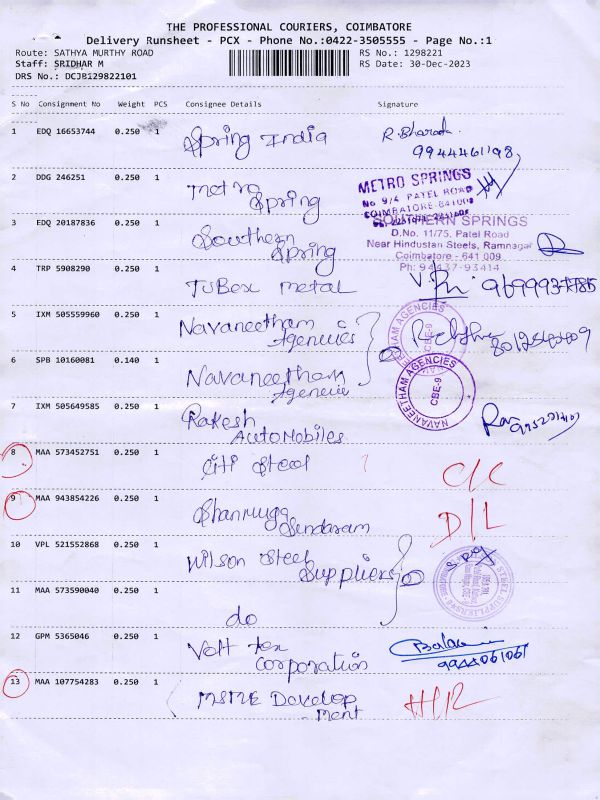 THE PROFESSIONAL COURIERS, COIMBATORE
Delivery Runsheet - PCX - Phone No.:0422-3505555 - Page No.:1
Route: SATHYA MURTHY ROAD RS No.: 1298221
Staff: SRIDHAR M RS Date: 30-Dec-2023
DRS No.: DCJB129822101
S No Consignment No Weight PCS Consignee Details Signature
1 EDQ 16653744 0.250 1 Spring India R. Bharath
9944461198
2 DDG 246251 0.250 1 Metro Spring
METRO SPRINGS
No 9/4 PATEL ROAD
COIMBATORE-641009
3 EDQ 20187836 0.250 1 Southern Spring
SOUTHERN SPRINGS
D.No. 11/75, Patel Road
Near Hindustan Steels, Ramnagar
Coimbatore - 641 009
Ph: 94437-93414
4 TRP 5908290 0.250 1 TuBex metal
5 IXM 505559960 0.250 1 Navaneetham Agencies
6 SPB 10160081 0.140 1 Navaneetham Agencies
NAVANEETHAM AGENCIES
CBE-9
7 IXM 505649585 0.250 1 Rakesh AutoMobiles
8 MAA 573452751 0.250 1 Citi Steel O/C
9 MAA 943854226 0.250 1 Shanmuga Sundaram D/L
10 VPL 521552868 0.250 1 Wilson Steel Suppliers
11 MAA 573590040 0.250 1 do
12 GPM 5365046 0.250 1 Volt tex Corporation
9944061061
13 MAA 107754283 0.250 1 MSME Develop
ment